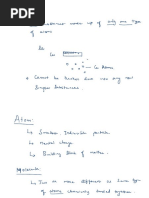 Substances made up of only one type
of atom
Ex
Cu
Cu Atoms
Cannot be further broken down into any new
Simpler Substances.
Atom:
Smallest Indivisible particle
Neutral Charge
Building Block of matter.
Molecule:
Two or more different or same type
of atoms chemically bonded together.